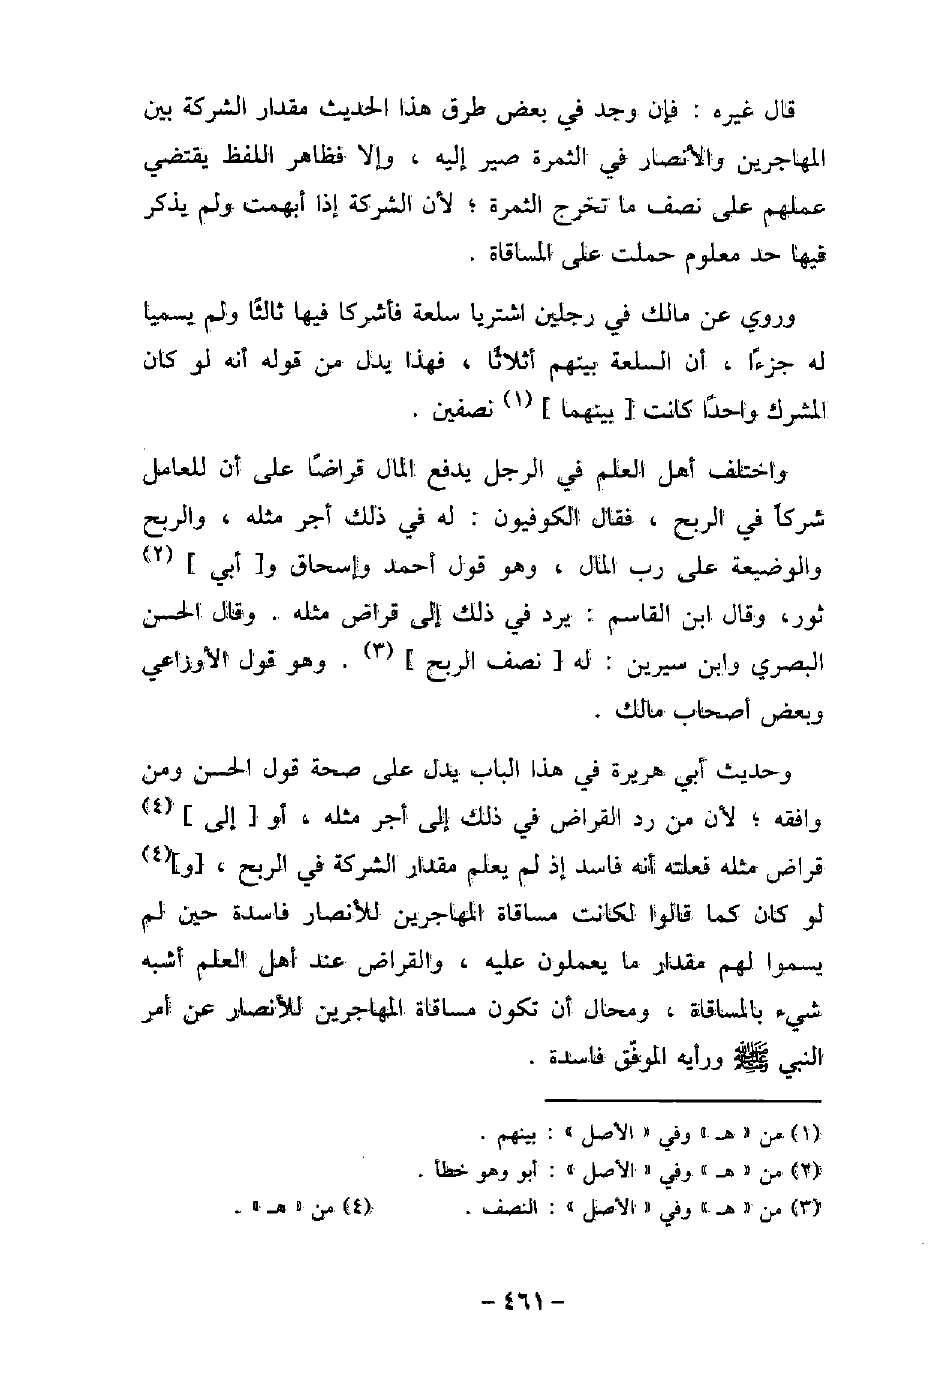 قال غيره : فإن وجد في بعض طرق هذا الحديث مقدار الشركة بين
المهاجرين والأنصار في الثمرة صير إليه ، وإلا فظاهر اللفظ يقتضي
عملهم على نصف ما تخرج الثمرة ؛ لأن الشركة إذا أبهمت ولم يذكر
فيها حد معلوم حملت على المساقاة .
وروي عن مالك في رجلين اشتريا سلعة فأشركا فيها ثالثًا ولم يسميا
له جزءًا ، أن السلعة بينهم أثلاثًا ، فهذا يدل من قوله أنه لو كان
المشرك واحدًا كانت [ بينهما ] (١) نصفين .
واختلف أهل العلم في الرجل يدفع المال قراضًا على أن للعامل
شركاً في الربح ، فقال الكوفيون : له في ذلك أجر مثله ، والربح
والوضيعة على رب المال ، وهو قول أحمد وإسحاق و[ أبي ] (٢)
ثور، وقال ابن القاسم : يرد في ذلك إلى قراض مثله . وقال الحسن
البصري وابن سيرين : له [ نصف الربح ] (٣) . وهو قول الأوزاعي
وبعض أصحاب مالك .
وحديث أبي هريرة في هذا الباب يدل على صحة قول الحسن ومن
وافقه ؛ لأن من رد القراض في ذلك إلى أجر مثله ، أو [ إلى ] (٤)
قراض مثله فعلته أنه فاسد إذ لم يعلم مقدار الشركة في الربح ، [و](٤)
لو كان كما قالوا لكانت مساقاة المهاجرين للأنصار فاسدة حين لم
يسموا لهم مقدار ما يعملون عليه ، والقراض عند أهل العلم أشبه
شيء بالمساقاة ، ومحال أن تكون مساقاة المهاجرين للأنصار عن أمر
النبي ﷺ ورأيه الموفّق فاسدة .
(١) من « هـ » وفي « الأصل » : بينهم .
(٢) من « هـ » وفي « الأصل » : أبو وهو خطأ .
(٣) من « هـ » وفي « الأصل » : النصف . (٤) من « هـ » .
- ٤٦١ -